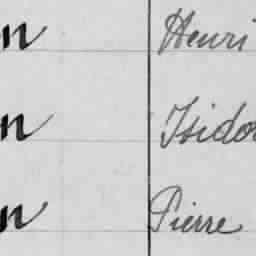 n Henri
n Isido
n Pierre